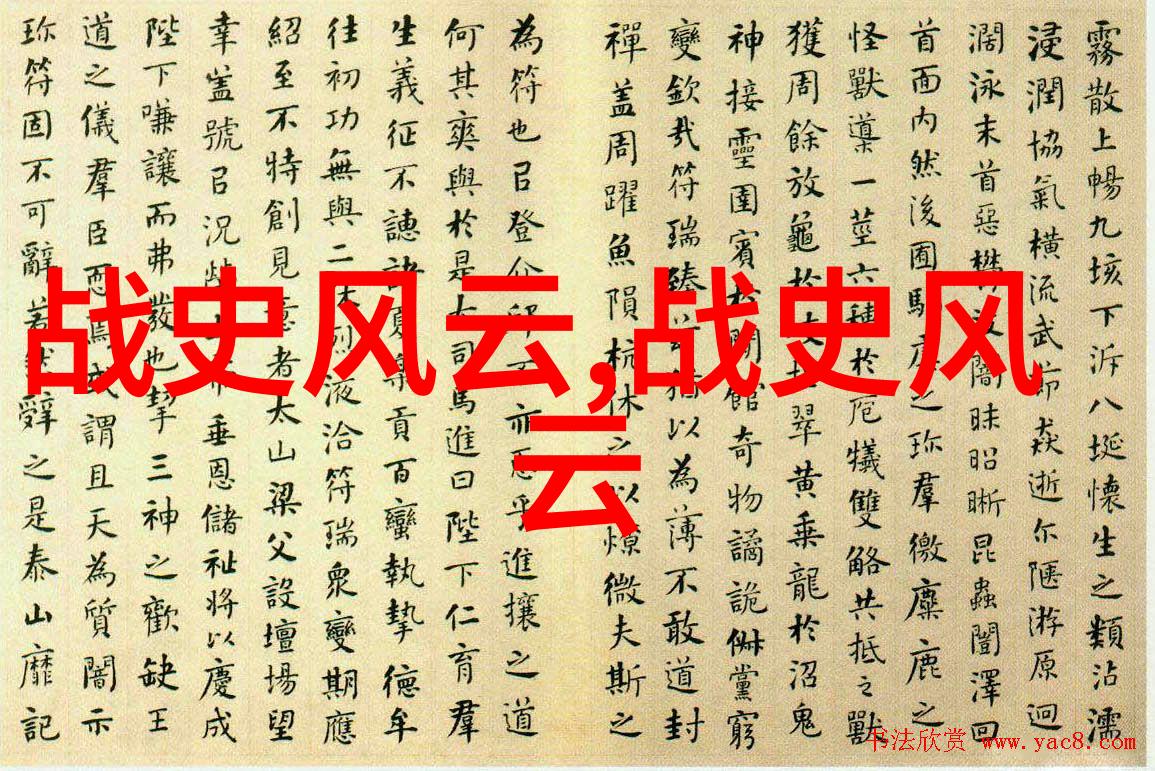 霧散上暢九垓下泝八埏懷生之類沾濡
浸潤協氣橫流武節猋逝尔陿游原迥
濶泳末首惡欝沒闇昧昭晰昆蟲闓澤回
首面内然後囿騶虞之珎羣徼麋鹿之
怪獸導一莖六穗於庖犧雙觡共抵之獸
獲周餘放龜於岐招翠黄乗龍於沼鬼
神接靈圉賓於閒館奇物譎詭俶黨窮
變欽哉符瑞臻兹猶以為薄不敢道封
禪盖周躍魚隕杭休之以燎微夫斯之
為符也㠯登介邱不亦恧乎進攘之道
何其爽與於是大司馬進曰陛下仁育羣
生義征不譓諸夏樂貢百蠻執摯德牟
往初功無與二休烈液洽符瑞衆變期應
紹至不特創見意者太山梁父設壇場望
幸盖號㠯况上帝垂恩儲祉将以慶成
陛下嗛讓而弗發也挈三神之歡缺王
道之儀羣臣恧焉或謂且天為質闇示
珎符固不可辭若然辭之是泰山靡記
战史风云,战史风
云
书法欣赏 www.yac8.com